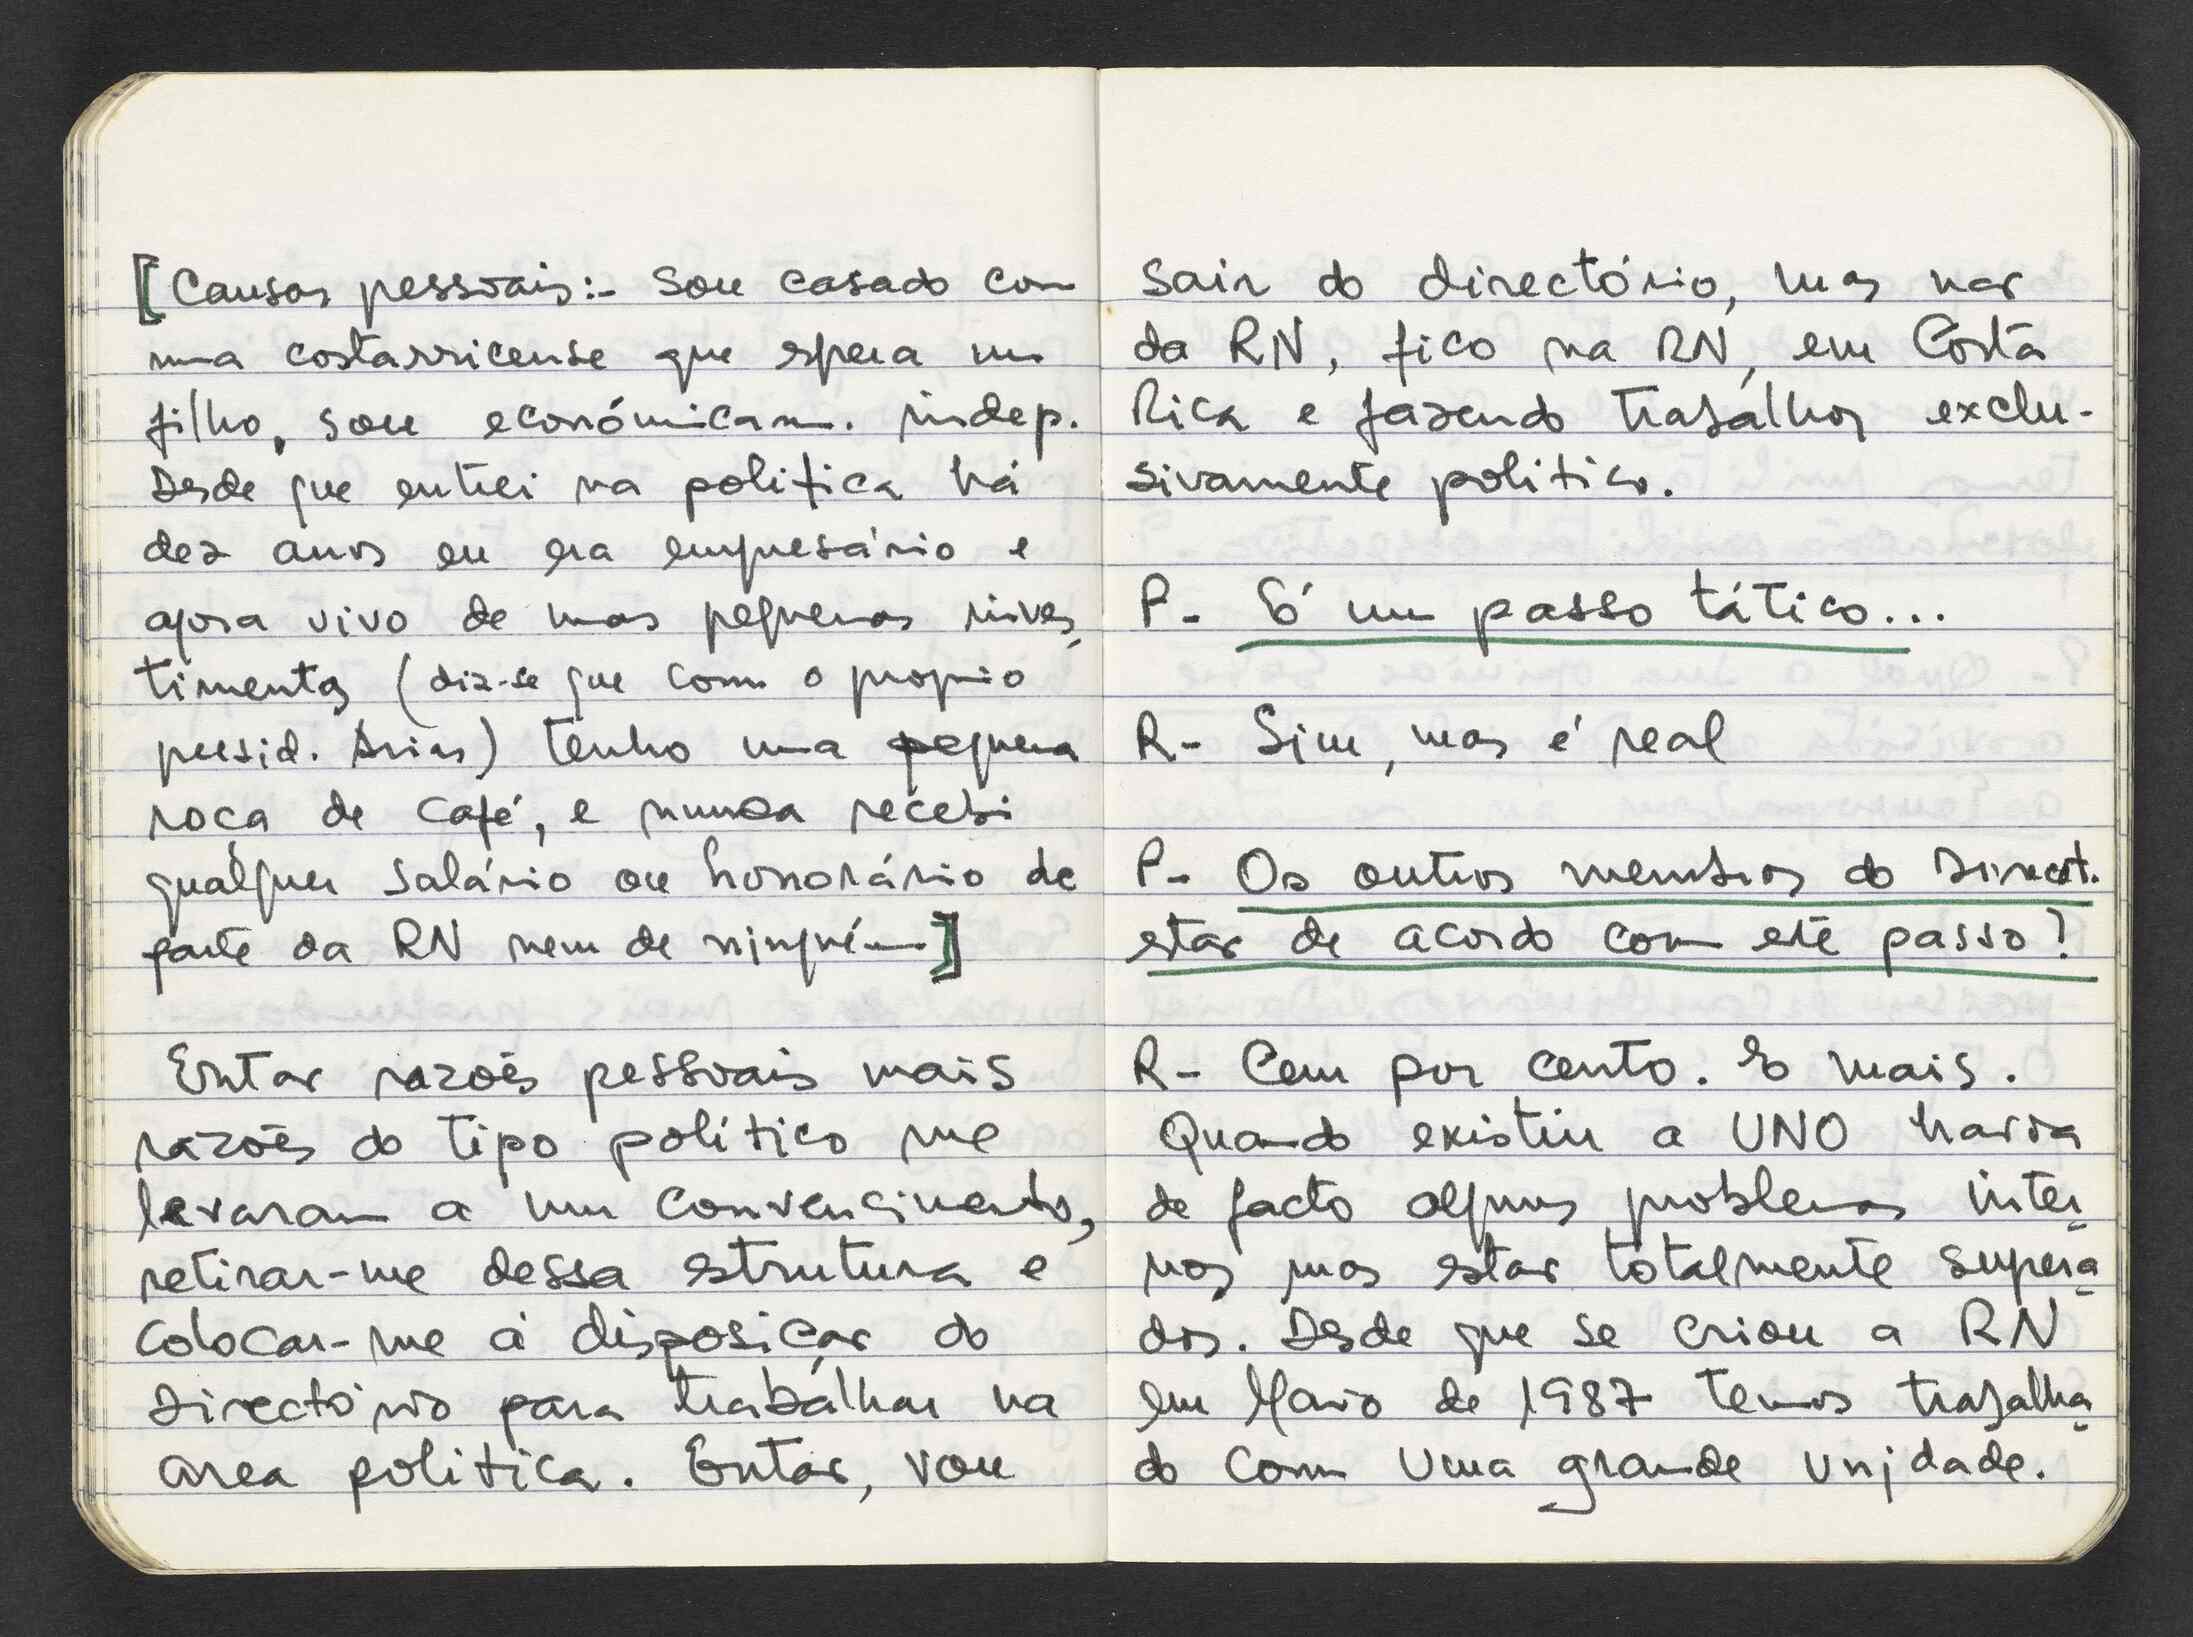 [Causas pessoais:- Sou casado com
uma costarricense que espera um
filho, sou económicam. indep.
Desde que entrei na politica há
dez anos eu era empresário e
agora vivo de umas pequenas inves-
timentos (diz-se que com o proprio
presid. Arias) tenho uma pequena
roca de café, e nunca recebi
qualquer salário ou honorário de
parte da RN nem de ninguém]
Entao razoês pessoais mais
razoês do tipo político me
levaram a um convencimento,
retirar-me dessa estrutura e
colocar-me à disposiçao do
Directório para trabalhar na
area politica. Entao, vou
sair do directório, mas nao
da RN, fico na RN, em Costa
Rica e fazendo trabalhos exclu-
sivamente politico.
P- É um passo tático...
R- Sim, mas é real
P- Os outros membros do Direct.
estao de acordo com este passo?
R- Cem por cento. E mais.
Quando existiu a UNO havia
de facto alguns problemas inter-
nos mas estao totalmente supera-
dos. Desde que se criou a RN
em Maio de 1987 temos trabalha-
do com uma grande unidade.